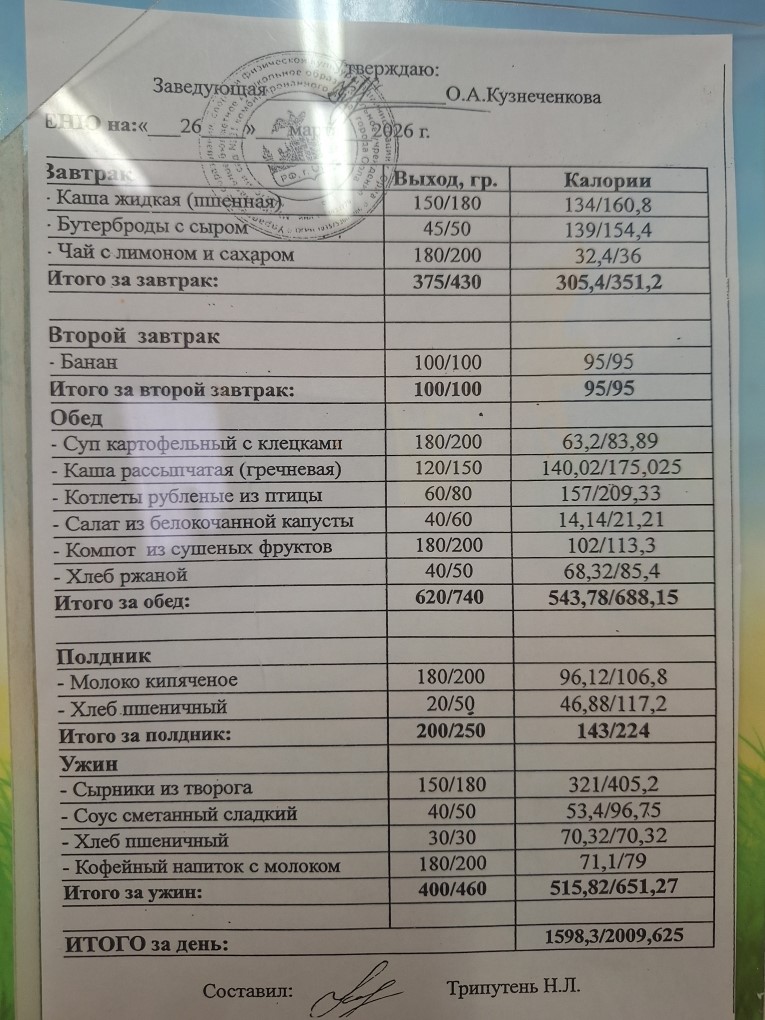 Утверждаю:
Заведующая О.А.Кузнеченкова
ЕНЮ на:« 26 » март 2026 г.
Завтрак Выход, гр. Калории
- Каша жидкая (пшенная) 150/180 134/160,8
- Бутерброды с сыром 45/50 139/154,4
- Чай с лимоном и сахаром 180/200 32,4/36
Итого за завтрак: 375/430 305,4/351,2
Второй завтрак
- Банан 100/100 95/95
Итого за второй завтрак: 100/100 95/95
Обед
- Суп картофельный с клецками 180/200 63,2/83,89
- Каша рассыпчатая (гречневая) 120/150 140,02/175,025
- Котлеты рубленые из птицы 60/80 157/209,33
- Салат из белокочанной капусты 40/60 14,14/21,21
- Компот из сушеных фруктов 180/200 102/113,3
- Хлеб ржаной 40/50 68,32/85,4
Итого за обед: 620/740 543,78/688,15
Полдник
- Молоко кипяченое 180/200 96,12/106,8
- Хлеб пшеничный 20/50 46,88/117,2
Итого за полдник: 200/250 143/224
Ужин
- Сырники из творога 150/180 321/405,2
- Соус сметанный сладкий 40/50 53,4/96,75
- Хлеб пшеничный 30/30 70,32/70,32
- Кофейный напиток с молоком 180/200 71,1/79
Итого за ужин: 400/460 515,82/651,27
ИТОГО за день: 1598,3/2009,625
Составил: Трипутень Н.Л.